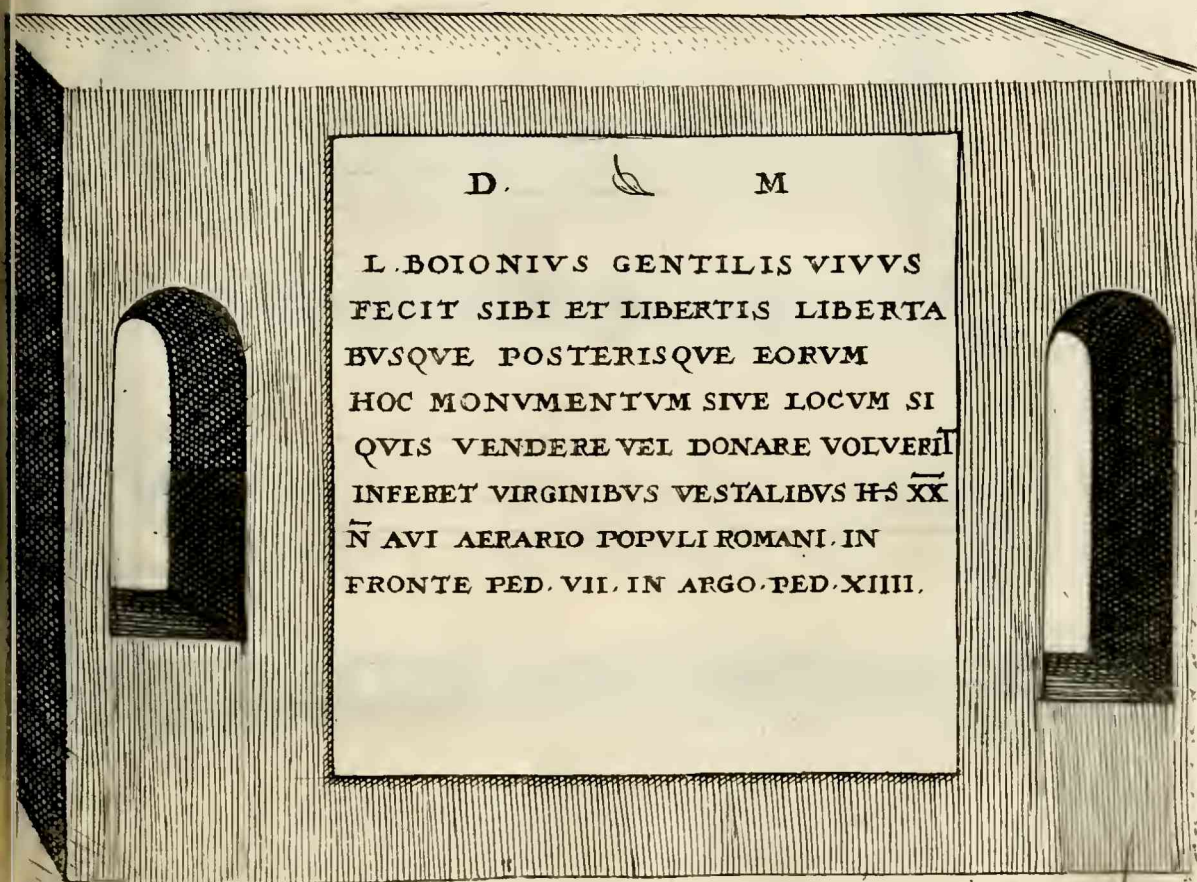 D. M
L. BOIONIVS GENTILIS VIVVS
FECIT SIBI ET LIBERTIS LIBERTA
BVSQVE POSTERISQVE EORVM
HOC MONVMENTVM SIVE LOCVM SI
QVIS VENDERE VEL DONARE VOLVERIT
INFERET VIRGINIBVS VESTALIBVS H-S X̅X̅
N̅ AVI AERARIO POPVLI ROMANI. IN
FRONTE PED. VII. IN ARGO. PED. XIIII.